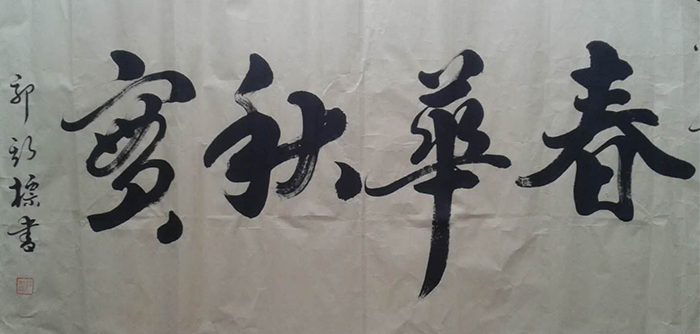 春華秋實
郭彩標書